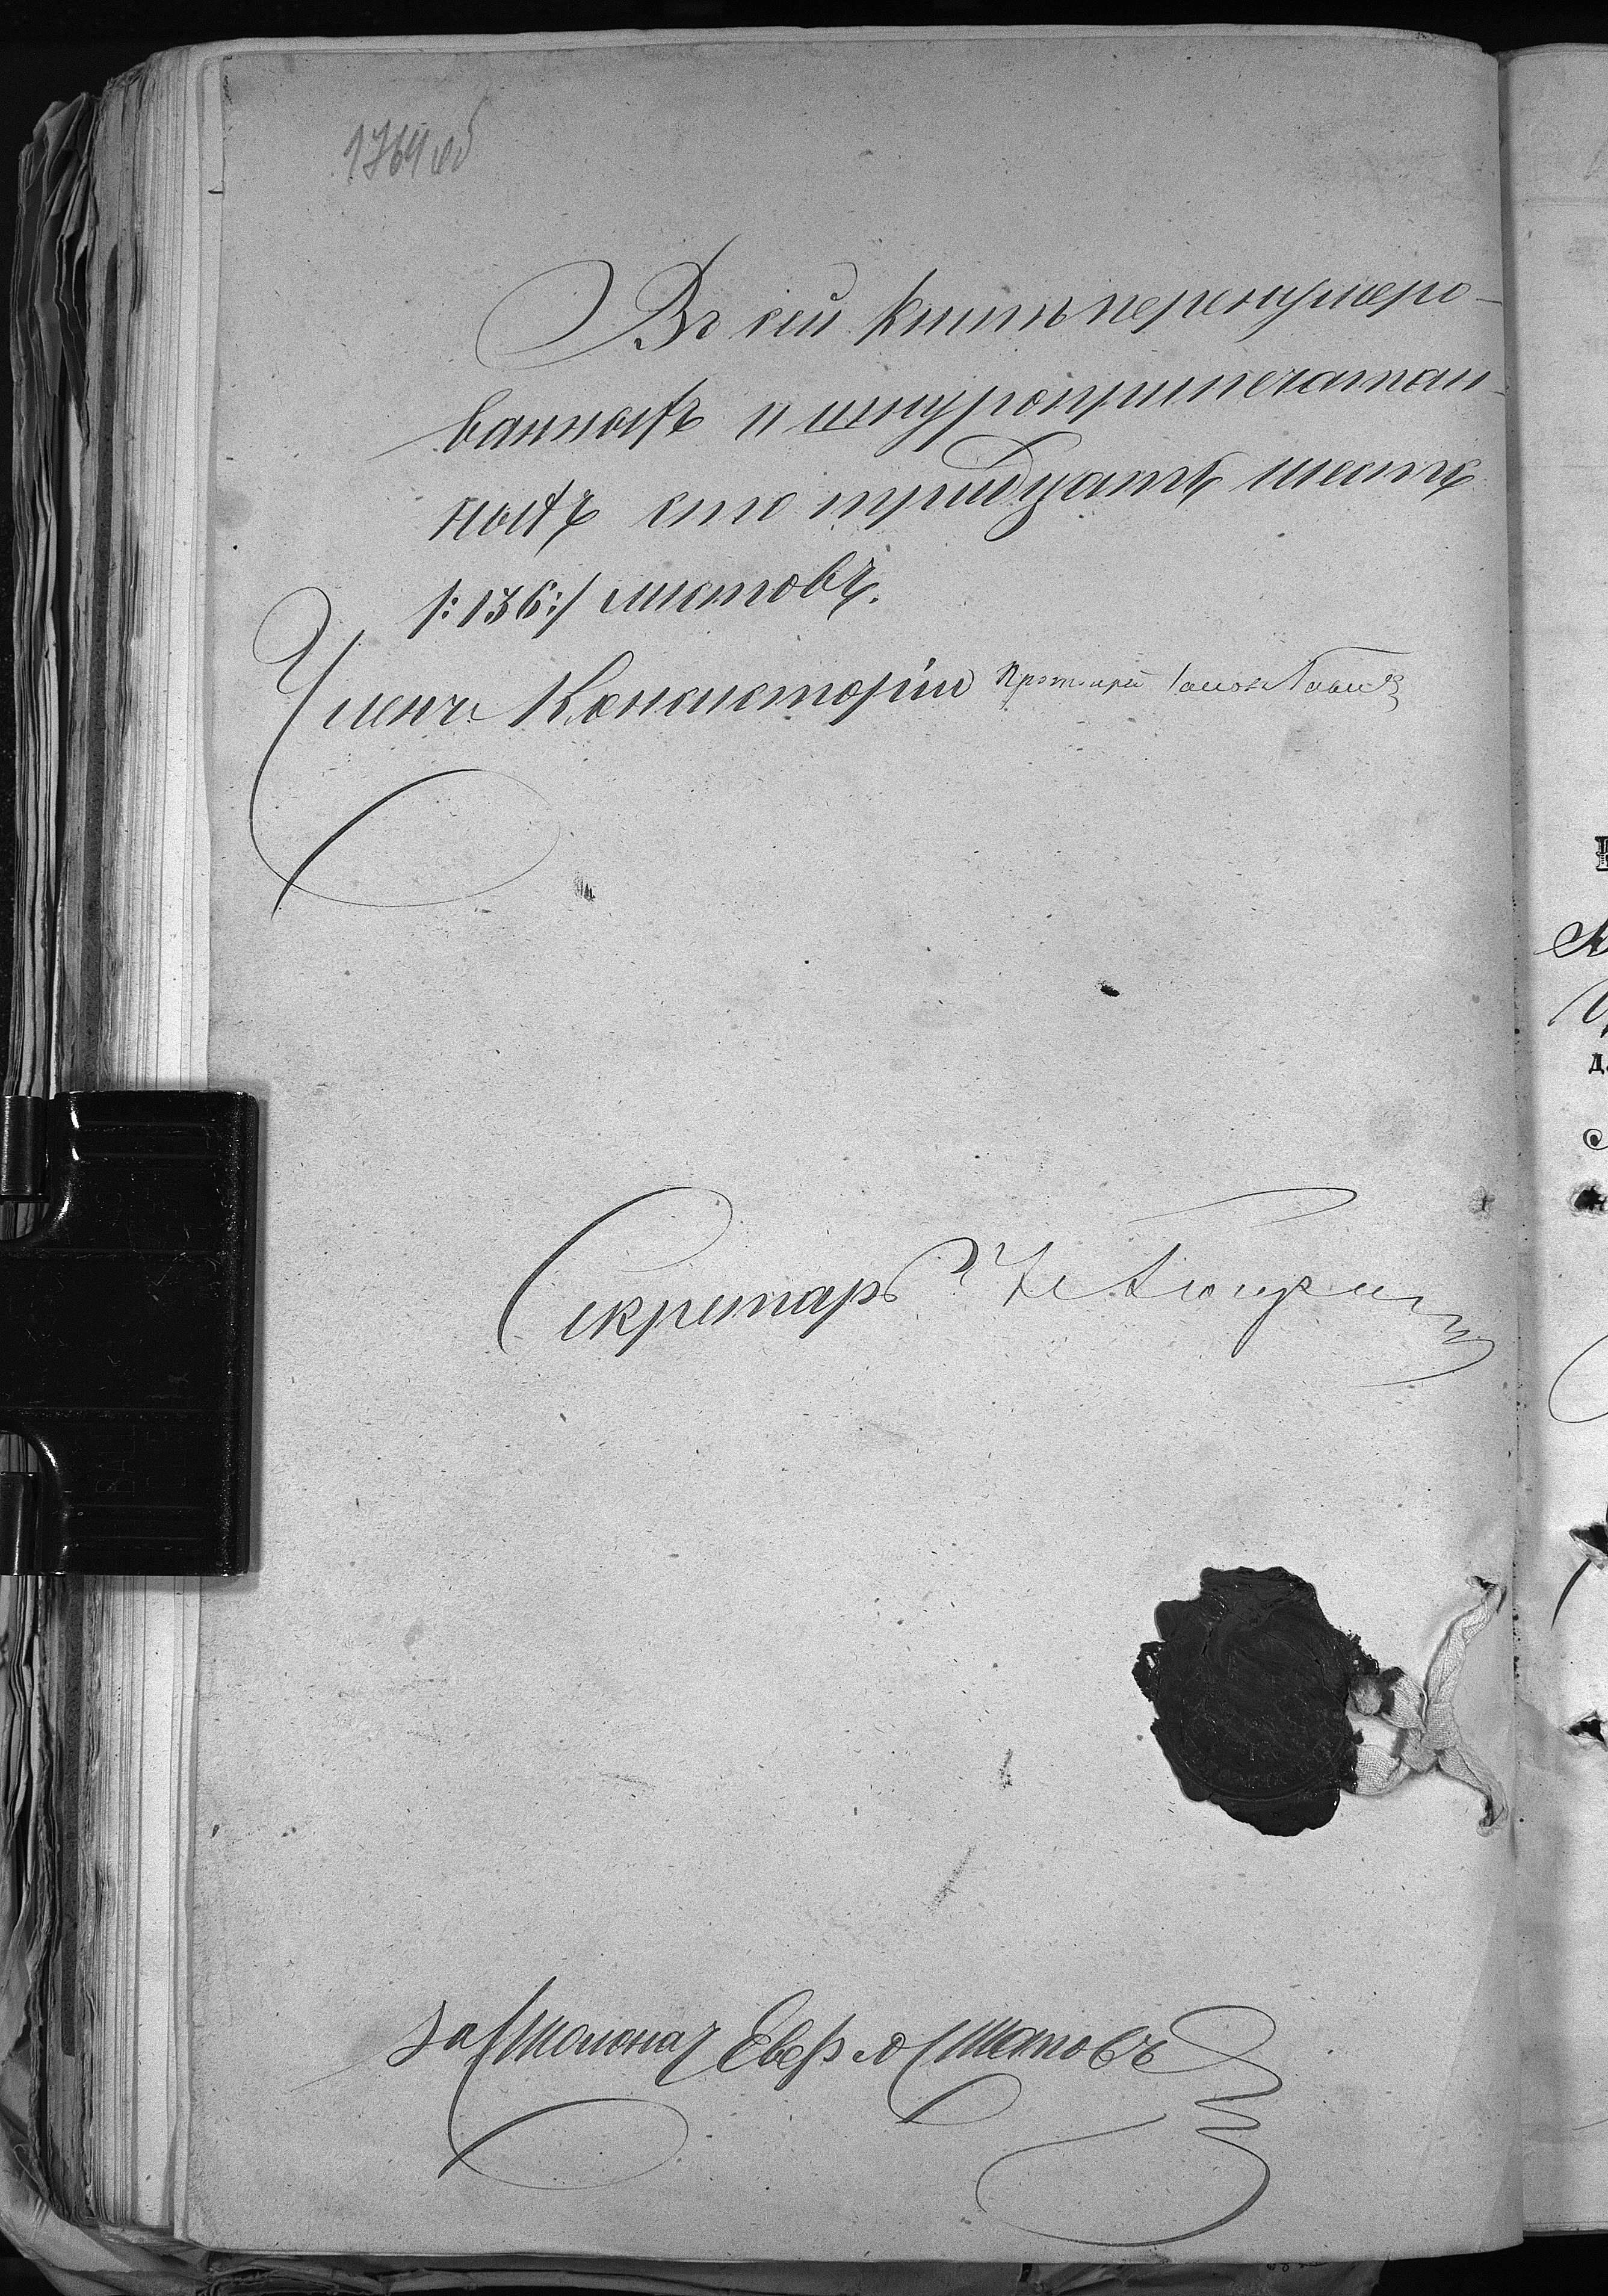 1764 об
Въ сей книгѣ перенумеро-
ванныхъ и шнуроприпечатан-
ныхъ сто тридцать шесть
/: 136 :/ листовъ.
Членъ Консисторіи Протоіерей
Секретарь
За Столонач Шатовъ